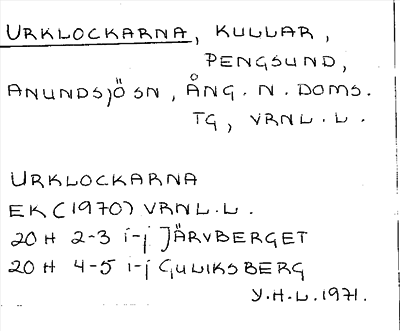 URKLOCKARNA, KULLAR,
PENGSUND,
ANUNDSJÖ SN, ÅNG. N. DOMS.
TG, VRNL.L.
URKLOCKARNA
EK (1970) VRNL.L.
20 H 2-3 i-j JÄRVBERGET
20 H 4-5 i-j GULIKSBERG
Y.H.L. 1971.